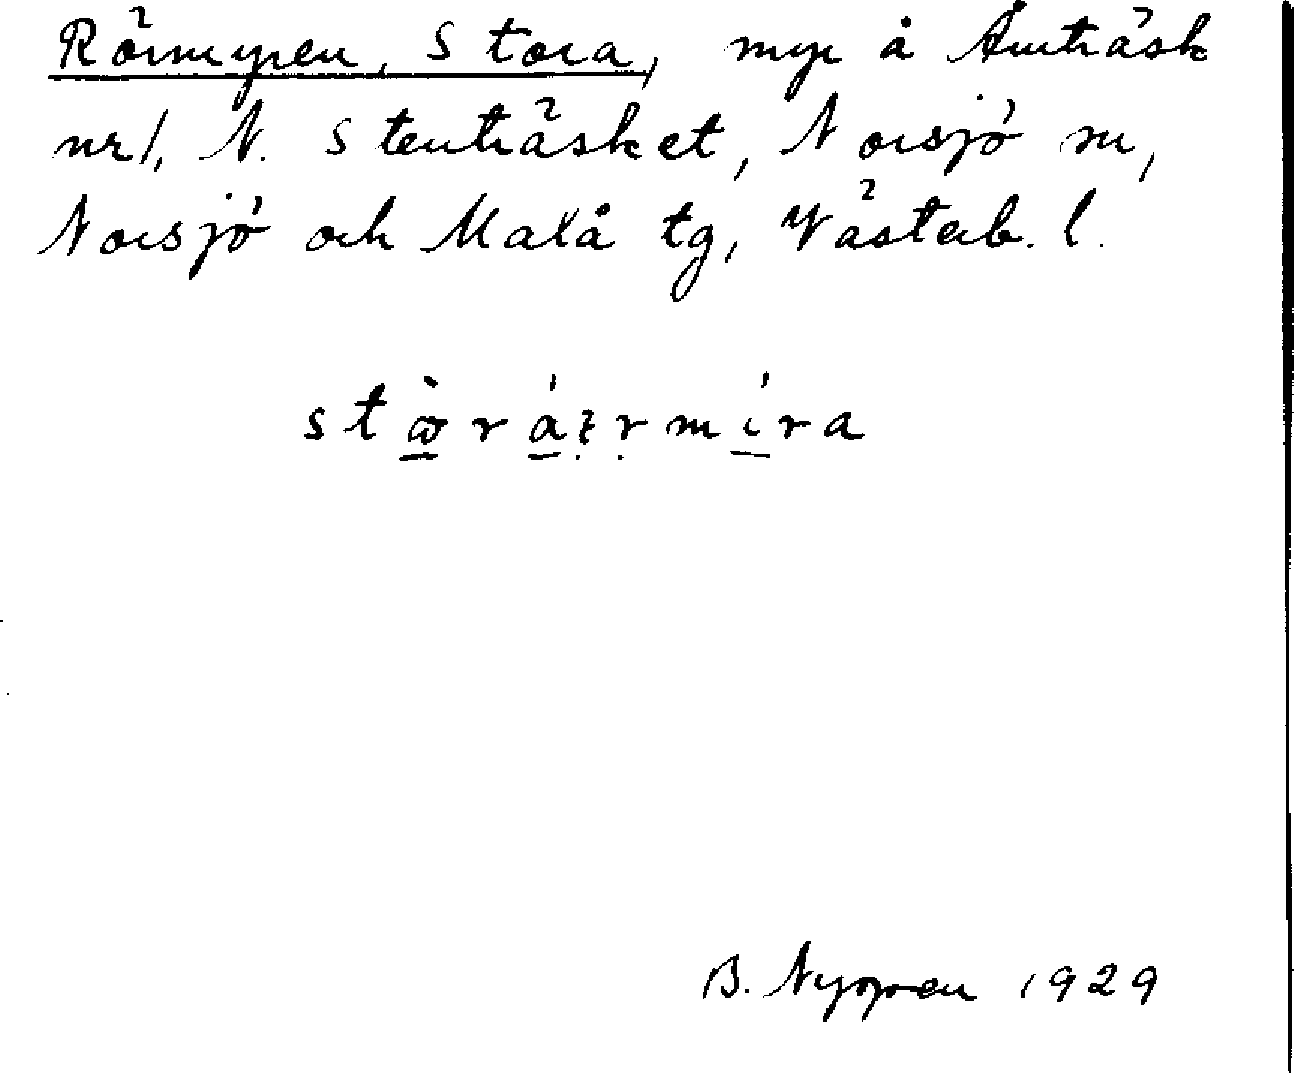 Rörmyren, Stora, myr å Åmträsk
nr 1, N. Stenträsket, Norsjö sn,
Norsjö och Malå tg, Västerb. l.
B. Nygren 1929